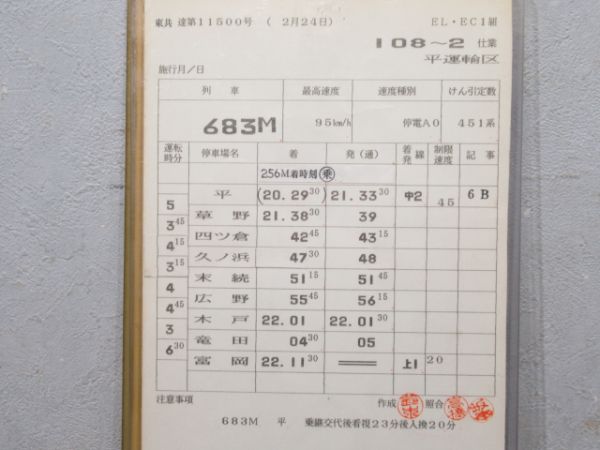 東共 達第11500号 ( 2月24日) EL・EC1組
108～2 仕業
平運輸区
施行月／日
列車 最高速度 速度種別 けん引定数
683M 95km/h 停電A0 451系
運転時分 停車場名 着 発(通) 着発線 制限速度 記事
256M着時刻 乗
平 (20.29 30) 21.33 30 中2 45 6B
5
草野 21.38 30 39
3 45
四ツ倉 42 45 43 15
4 15
久ノ浜 47 30 48
3 15
末続 51 15 51 45
4
広野 55 45 56 15
4 45
木戸 22.01 22.01 30
3
竜田 04 30 05
6 30
富岡 22.11 30 ＝ 上1 20
注意事項 作成 照合
683M 平 乗継交代後看視23分後入換20分